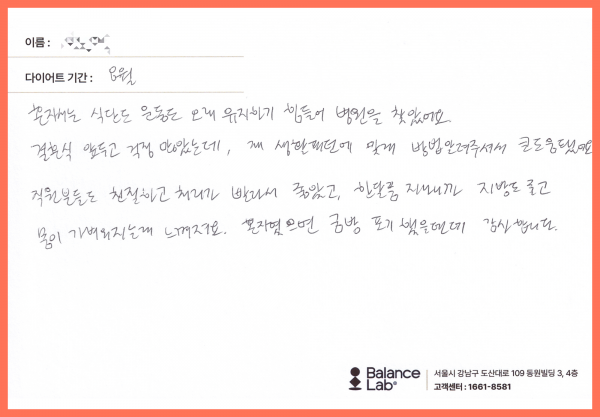 이름 :
다이어트 기간 : 8월
혼자서는 식단도 운동도 오래 유지하기 힘들어 병원을 찾았어요.
결혼식 앞두고 걱정 많았는데, 제 생활패턴에 맞게 방법알려주셔서 큰도움됐어요
직원분들도 친절하고 처리가 빨라서 좋았고, 한달쯤 지나니까 지방도 줄고
몸이 가벼워지는게 느껴져요. 혼자였으면 금방 포기 했을텐데 감사합니다.
Balance Lab®
서울시 강남구 도산대로 109 동원빌딩 3, 4층
고객센터 : 1661-8581